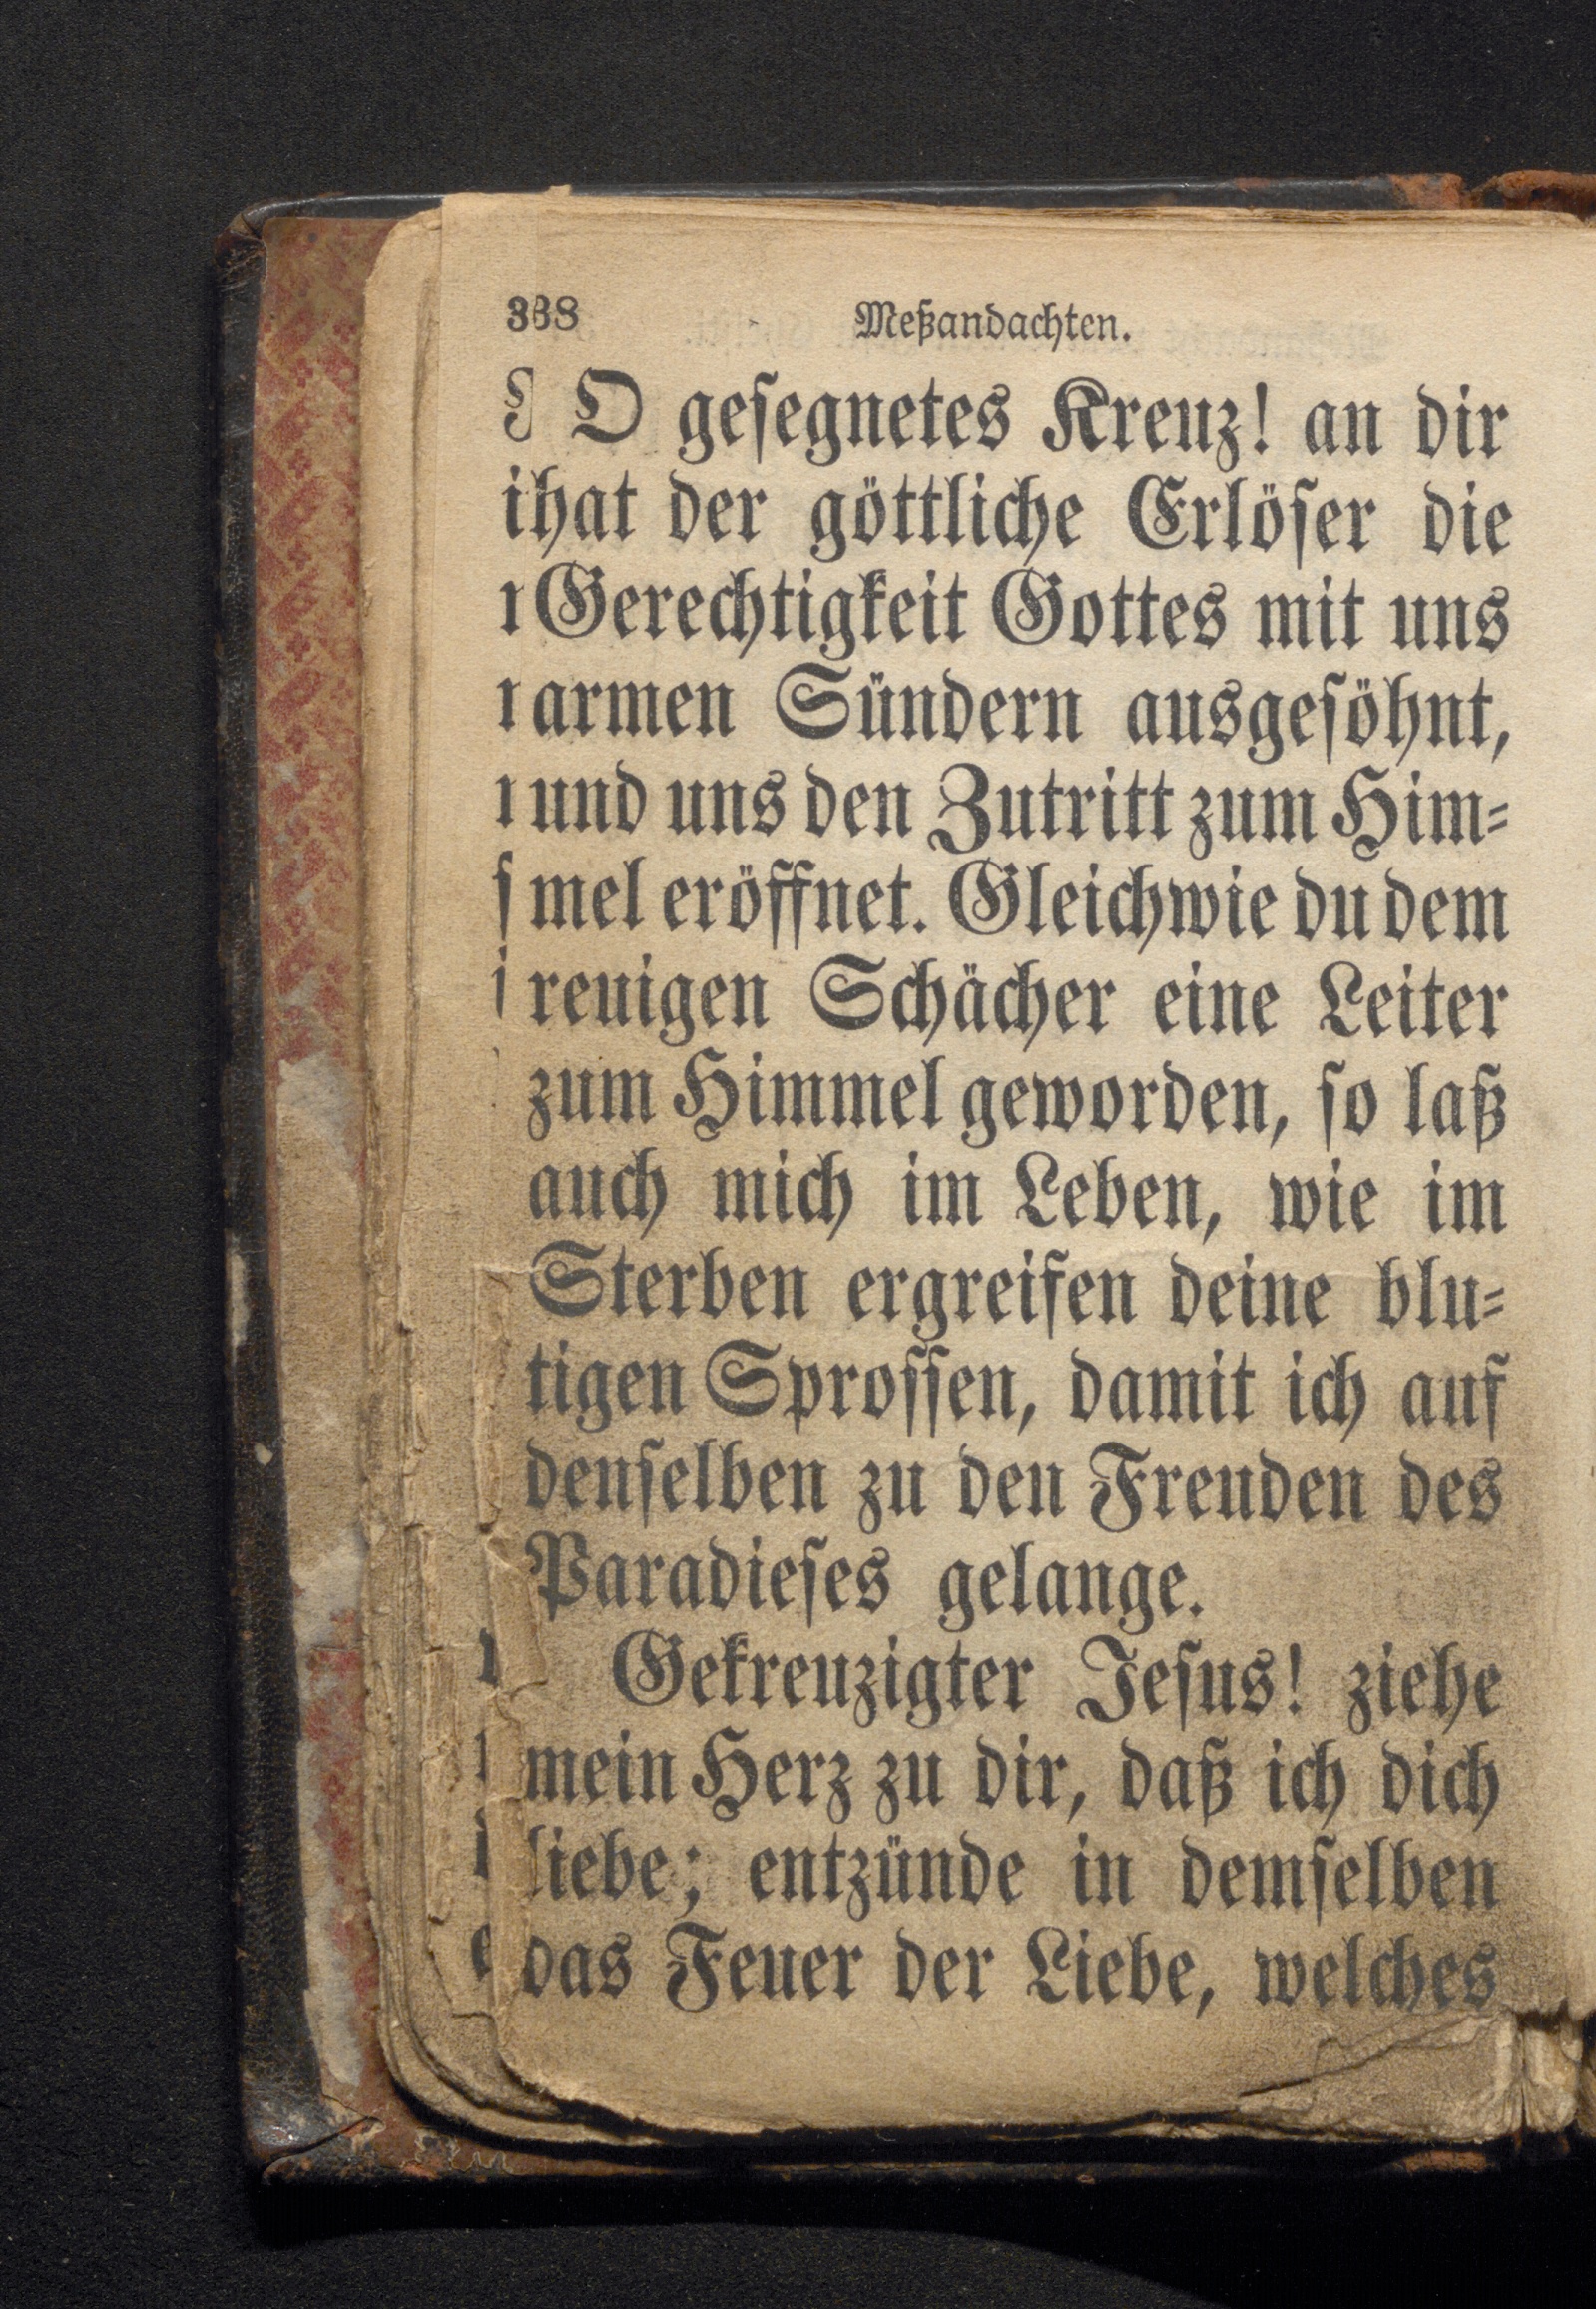 Meßandachten.
O gesegnetes Kreuz! an dir
hat der göttliche Erlöser die
Gerechtigkeit Gottes mit uns
armen Sündern ausgesöhnt,
und uns den Zutritt zum Him-
mel eröffnet. Gleichwie du dem
reuigen Schächer eine Leiter
zum Himmel geworden, so laß
auch mich im Leben, wie im
Sterben ergreifen deine blu-
tigen Sprossen, damit ich auf
denselben zu den Freuden des
Paradieses gelange.
Gekreuzigter Jesus! ziehe
mein Herz zu dir, daß ich dich
liebe; entzünde in demselben
das Feuer der Liebe, welches